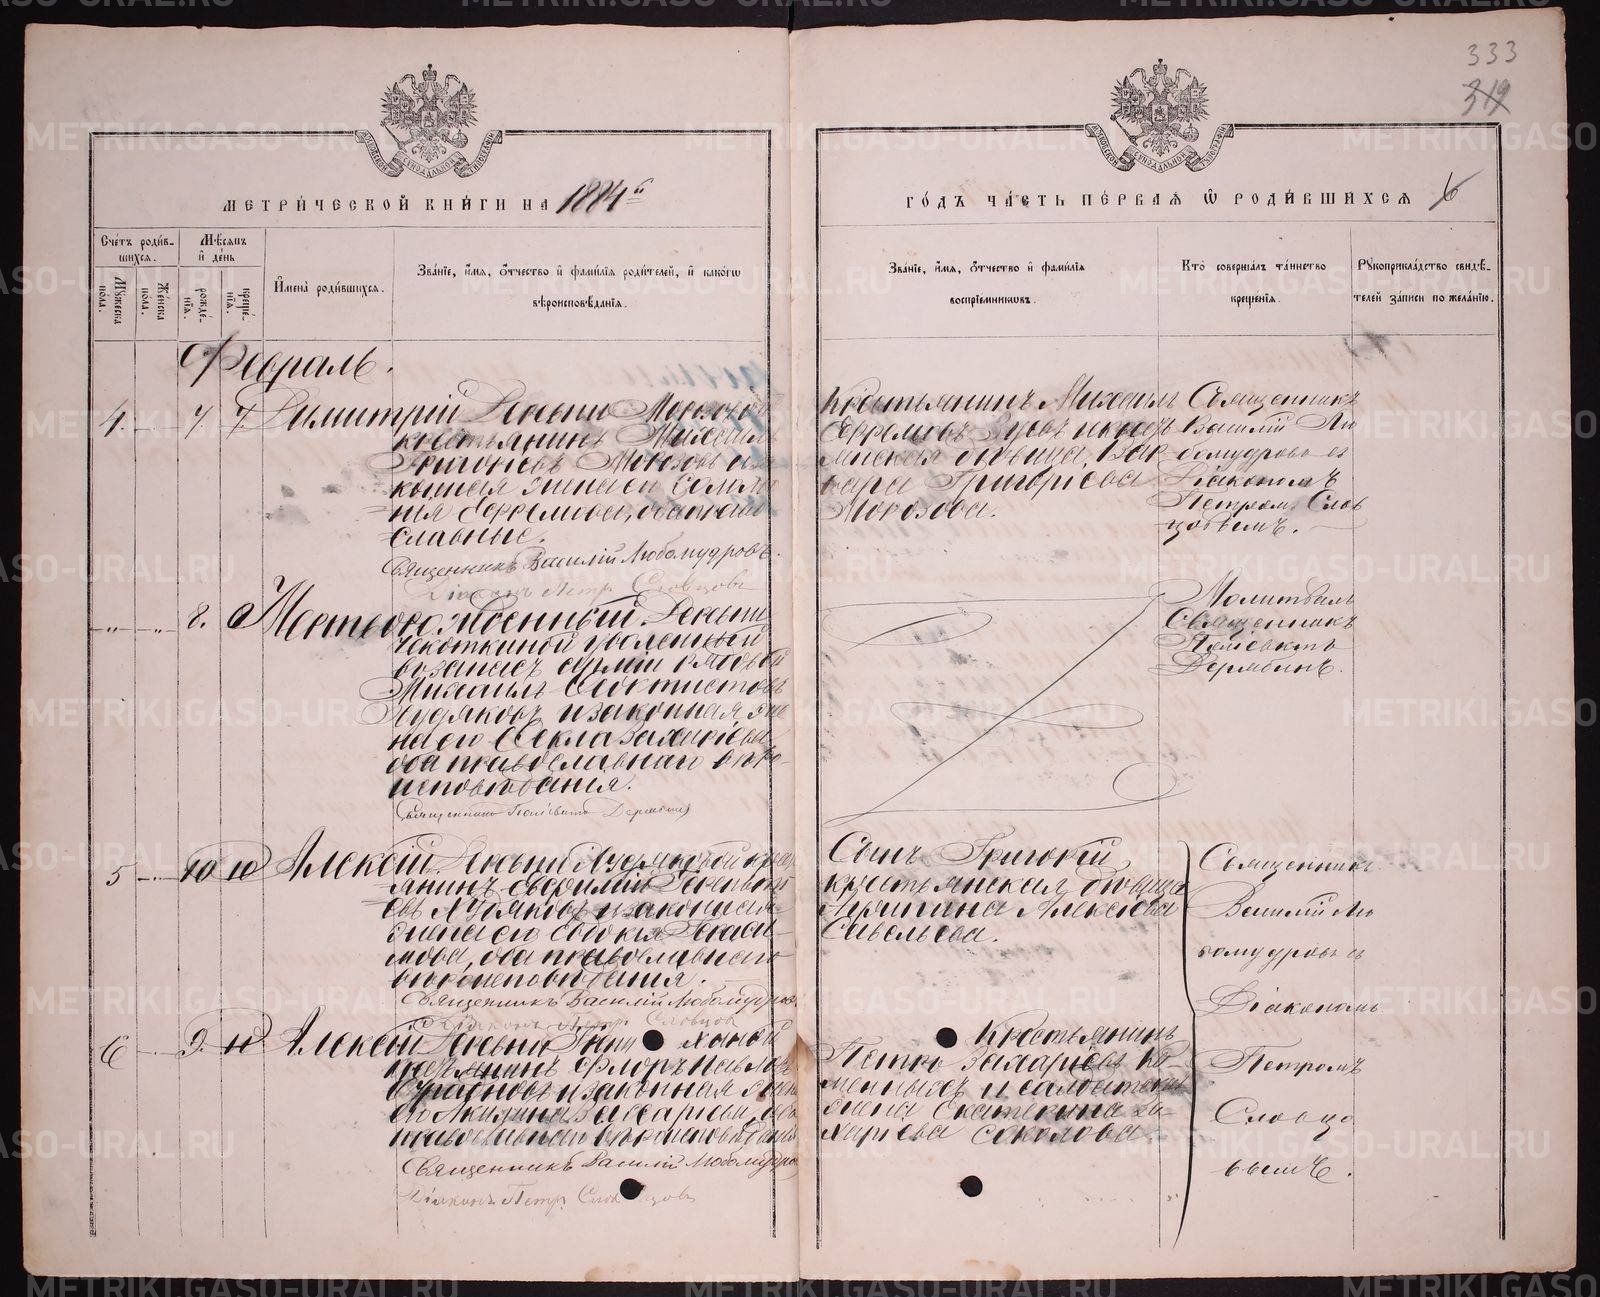 333
319
МЕТРИЧЕСКОЙ КНИГИ НА 1884 г
ГОДЪ ЧАСТЬ ПЕРВАЯ Ѡ РОДИВШИХСЯ 6
Счетъ родив-
шихся.
Мѣсяцъ
и день
Мужеска
пола.
Женска
пола.
рожде-
нія.
креще-
нія.
Имена родившихся.
Званіе, имя, отчество и фамилія родителей, и какогѡ
вѣроисповѣданія.
Званіе, имя, отчество и фамилія
воспріемниковъ.
Кто совершалъ таинство
крещенія.
Рукоприкладство свидѣ-
телей записи по желанію.
Февраль.
4. 7. 7. Димитрій Деревни Морозовой
крестьянинъ Михаилъ
Григорьевъ Морозовъ и за
конная жена его Соломо
нія Ефремова, оба право
славные.
Священникъ Василій Любомудровъ.
Діаконъ Петр Словцовъ
Крестьянинъ Михаилъ
Ефремовъ и крестъ
янская дѣвица, Вар
вара Григоріева
Морозова.
Священникъ
Василій Лю
бомудровъ съ
Діакономъ
Петромъ Слов
цовымъ.
8. Мертворожденный Деревни
уволенный
въ запасъ арміи рядовой
Михаилъ Ѳеоктистовъ
Худяковъ и законная же
на его Ѳекла Захаріева
оба православнаго вѣро-
исповѣданія.
Священникъ Дерябинъ
Молитвалъ
Священникъ
Дерябинъ.
5 10 10 Алексій Деревни Худяковой крест
янинъ
евъ Худяковъ и законная
жена его Евдокія Гераси-
мова, оба православнаго
вѣроисповѣданія.
Священникъ Василій Любомудровъ
Діаконъ Петр Словцовъ
Сынъ Григорій
крестьянская дѣвица
Алексіева
Савельева.
Священникъ
Василій Лю
бомудровъ съ
Діакономъ
Петромъ
Словцо
вымъ.
6 9. 10 Алексій Деревни
крестьянинъ Флоръ Павловъ
и законная жена
его Акилина Захаріева, оба
православнаго вѣроисповѣданія
Священникъ Василій Любомудровъ
Діаконъ Петр Словцовъ
Крестьянинъ
Петръ Захаріевъ
и солдатская
жена Екатерина За
харіева Соколова.